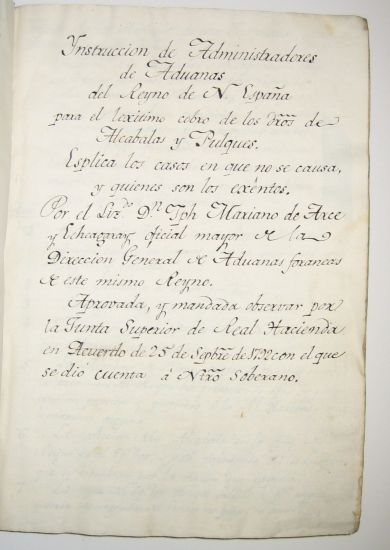 Ynstruccion de Administradores
de Aduanas
del Reyno de N. España
para el lexitimo cobro de los dr̃os de
Alcabalas y Pulques.
Esplica los casos en que no se causa,
y quienes son los exéntos.
Por el Liz.do D.n Jph Mariano de Arce
y Echeagaray oficial mayor de la
Direccion General de Aduanas foraneas
de este mismo Reyno.
Aprovada, y mandada observar por
la Junta Superior de Real Hacienda
en Acuerdo de 25 de Sepbr̃e de 1792 con el que
se dió cuenta á Ntr̃o Soberano.